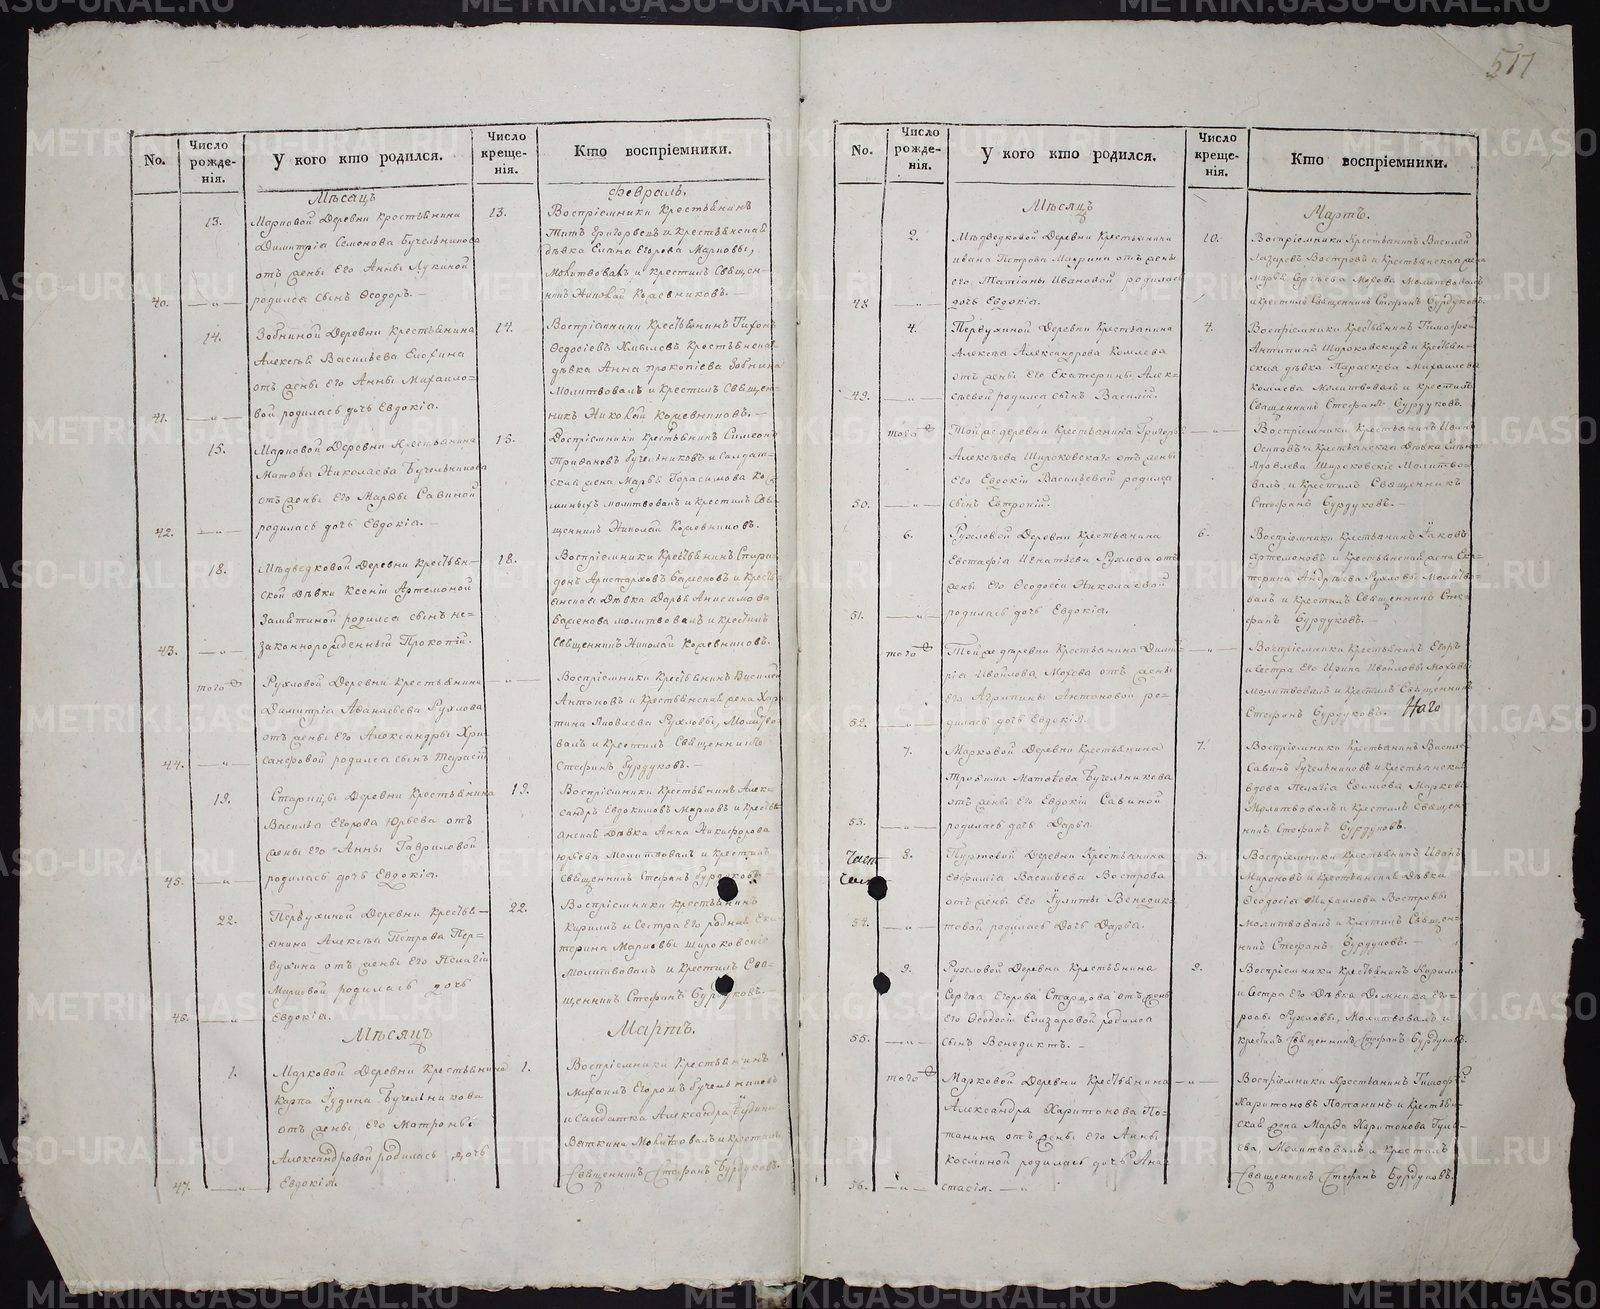 517
No.
Число рожде-нія.
У кого кто родился.
Число креще-нія.
Кто воспріемники.
Мѣсяцъ
Февраль.
13.
Марковой Деревни Крестьянина
Димитріа Семонова Бучельникова
отъ жены Его Анны Лукиной
40.
родился сынъ Ѳеодоръ.
13.
Воспріемники Крестьянинъ
Титъ Григорьевъ и Крестьянская
дѣвка Елена Егорова Марковы,
Молитвовалъ и Крестилъ Священ-
никъ Николай Кожевниковъ.
14.
Зобниной Деревни Крестьянина
Алексѣя Васильева Елохина
отъ жены Его Анны Михайло-
41.
вой родилась дочь Евдокіа.
14.
Воспріемники Крестьянинъ Тихонъ
Ѳедосіевъ Хмылевъ Крестьянская
дѣвка Анна Прокопіева Зобнина
Молитвовалъ и Крестилъ Священ-
никъ Николай Кожевниковъ.
15.
Марковой Деревни Крестьянина
Николаева Бучельникова
отъ жены Его Марѳы Савиной
42.
родилась дочь Евдокіа.
15.
Воспріемники Крестьянинъ Симеонъ
Трифановъ Бучельниковъ и Салдат-
ская жена Марья Герасимова
молитвовалъ и крестилъ Свя-
щенникъ Николай Кожевниковъ.
18.
Мѣдведковой Деревни Крестьян-
ской Дѣвки Ксеніи Артемоной
Замятиной родился сынъ не-
43.
законнорожденный Прокопій.
18.
Воспріемники Крестьянинъ Спири-
донъ Аристарховъ Баженовъ и Кресть-
анская Дѣвка Дарья Анисимова
Баженова молитвовалъ и Крестилъ
Священникъ Николай Кожевниковъ.
того
Рухловой Деревни Крестьянина
Димитріа Аѳанасьева Рухлова
отъ жены Его Александры Хри-
44.
санфовой родился сынъ Тарасій
Воспріемники Крестьянинъ Василей
Антоновъ и Крестьянская жена Хари-
тина Яковлева Рухловы, Молитво-
валъ и Крестилъ Священникъ
Стефанъ Бурдуковъ.
19.
Старицы Деревни Крестьянина
Василья Егорова Юрьева отъ
жены его Анны Гавриловой
45.
родилась дочь Евдокіа.
19.
Воспріемники Крестьянинъ Алек-
сандръ Евдокимовъ Марковъ и Кресть-
янская Дѣвка Анна Никифорова
Юрьева Молитвовалъ и Крестилъ
Священникъ Стефанъ Бурдуковъ.
22.
Первухиной Деревни Кресть-
янина Алексѣя Петрова Пер-
вухина отъ жены Его Пелагіи
Марковой родилась дочь
46.
Евдокіа.
22.
Воспріемники Крестьянинъ
Кирилъ и Сестра Его родная Ека-
терина Марковы Широковскіе
Молитвовалъ и Крестилъ Свя-
щенникъ Стефанъ Бурдуковъ.
Мѣсяцъ
Мартъ.
1.
Марковой Деревни Крестьянина
Карпа Іудина Бучельникова
отъ жены Его Матроны
Александровой родилась дочь
47.
Евдокіа.
1.
Воспріемники Крестьянинъ
Михаилъ Егоровъ Бучельниковъ
и Салдатка Александра Іудина
Вяткина Молитвовалъ и Крестилъ
Священникъ Стефанъ Бурдуковъ.
No.
Число рожде-нія.
У кого кто родился.
Число креще-нія.
Кто воспріемники.
Мѣсяцъ
Мартъ.
2.
Мѣдведковой Деревни Крестьянина
Ивана Петрова отъ жены
его Татіаны Ивановой родилась
48.
дочь Евдокіа.
10.
Воспріемники Крестьянинъ Василей
Лазаревъ Востровъ и Крестьянская жена
Марья Сергѣева Мохова Молитвовалъ
и крестилъ Священникъ Стефанъ Бурдуковъ.
4.
Первухиной Деревни Крестьянина
Алексѣя Александрова Комлева
отъ жены Его Екатерины Алек-
49.
сѣевой родился сынъ Василій.
4.
Воспріемники Крестьянинъ Тимофей
Антипинъ Широковскихъ и Крестьян-
ская дѣвка Параскева Михайлова
Комлева Молитвовалъ и крестилъ
Священникъ Стефанъ Бурдуковъ.
того
Той же деревни Крестьянина Григорья
Алексѣева Широковскаго отъ жены
Его Евдокіи Васильевой родился
50.
сынъ Евтропій.
Воспріемники Крестьянинъ Иванъ
Осиповъ и Крестьянская Дѣвка
Яковлева Широковскіе Молитво-
валъ и Крестилъ Священникъ
Стефанъ Бурдуковъ.
6.
Рухловой Деревни Крестьянина
Евстафіа Игнатьева Рухлова отъ
жены Его Ѳеодосіи Николаевой
51.
родилась дочь Евдокіа.
6.
Воспріемники Крестьянинъ Іаковъ
Артемоновъ и Крестьянская жена Ека-
терина Андрѣева Рухловы Молитво-
валъ и Крестилъ Священникъ Сте-
фанъ Бурдуковъ.
того
Той же деревни Крестьянина Дими-
ріа Ивойлова Мохова отъ жены
Его Агрипины Антоновой ро-
52.
дилась дочь Евдокія.
Воспріемники Крестьянинъ Егоръ
и Сестра Его Ирина Ивойловы Моховы
Молитвовалъ и Крестилъ Священникъ
Стефанъ Бурдуковъ.
7.
Марковой Деревни Крестьянина
Трофима Матѳеева Бучельникова
отъ жены Его Евдокіи Савиной
53.
родилась дочь Дарья
7.
Воспріемники Крестьянинъ Василей
Савинъ Бучельниковъ и Крестьянская
вдова Пелагіа Ефимова Маркова
Молитвовалъ и Крестилъ Священ-
никъ Стефанъ Бурдуковъ.
8.
Пуртовой Деревни Крестьянина
Евфиміа Васильева Вострова
отъ жены Его Іулиты Венедик-
54.
товой родилась Дочь Дарья.
8.
Воспріемники Крестьянинъ Иванъ
Мироновъ и Крестьянская Дѣвка
Ѳеодосіа Михайлова Востровы
Молитвовалъ и Крестилъ Священ-
никъ Стефанъ Бурдуковъ.
9.
Рухловой Деревни Крестьянина
Сергѣя Егорова Старцова отъ жены
Его Ѳеодосіи Елизаровой родился
55.
сынъ Венедиктъ.
9.
Воспріемники Крестьянинъ Кирилло
и Сестра Его Дѣвка Домника Его-
ровы Рухловы, Молитвовалъ и
крестилъ Священникъ Стефанъ Бурдуковъ.
того
Марковой Деревни Крестьянина
Александра Харитонова По-
танина отъ жены Его Анны
Косминой родилась дочь Ана-
56.
стасіа.
Воспріемники Крестьянинъ Тимофей
Харитоновъ Потанинъ и Крестьян-
ская жена Марѳа Харитонова Гуля-
ева, Молитвовалъ и Крестилъ
Священникъ Стефанъ Бурдуковъ.
METRIKI.GASO-URAL.RU